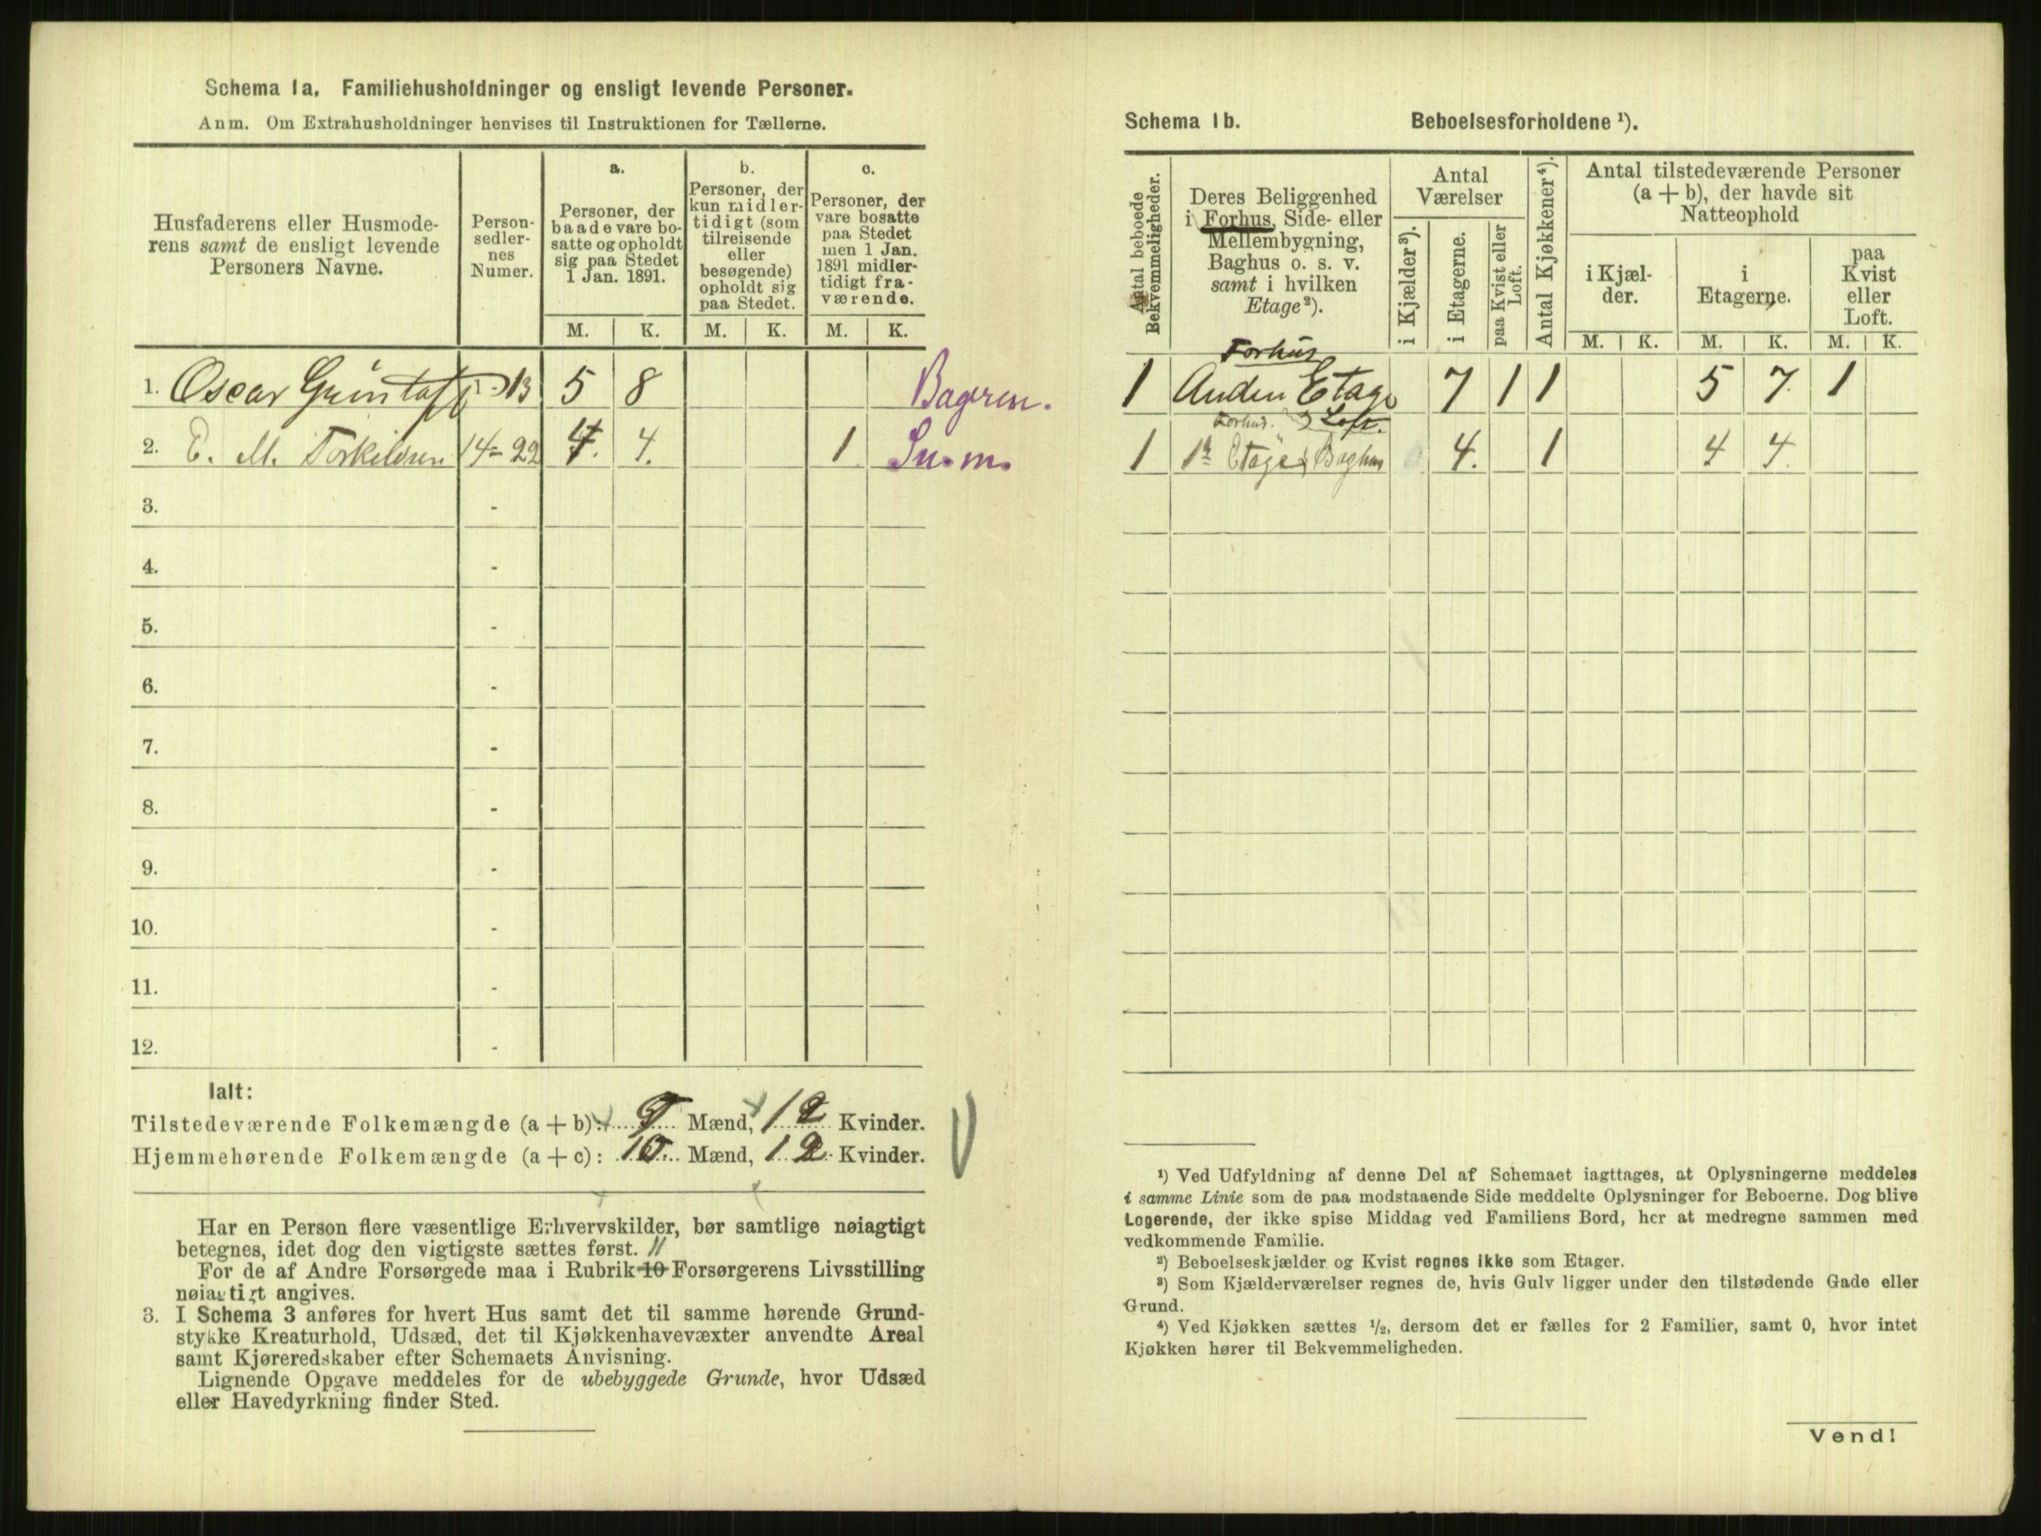 Schema 1a. Familiehusholdninger og ensligt levende Personer.
Anm. Om Extrahusholdninger henvises til Instruktionen for Tællerne.
Husfaderens eller Husmode-
rens samt de ensligt levende
Personers Navne.
Person-
sedler-
nes
Numer.
a.
Personer, der
baade vare bo-
satte og opholdt
sig paa Stedet
1 Jan. 1891.
b.
Personer, der
kun midler-
tidigt (som
tilreisende
eller
besøgende)
opholdt sig
paa Stedet.
c.
Personer, der
vare bosatte
paa Stedet
men 1 Jan.
1891 midler-
tidigt fra-
værende.
M. K. M. K. M. K.
1. Oscar 1-13 5 8 Bagren.
2. E. M. Torkildsen 14-22 4. 4. 1 Su.m.
3. -
4. -
5. -
6. -
7. -
8. -
9. -
10. -
11. -
12. -
Ialt:
Tilstedeværende Folkemængde (a + b): 9 Mænd, 12 Kvinder.
Hjemmehørende Folkemængde (a + c): 10 Mænd, 12 Kvinder.
Har en Person flere væsentlige Erhvervskilder, bør samtlige nøiagtigt
betegnes, idet dog den vigtigste sættes først. 11
For de af Andre Forsørgede maa i Rubrik 10 Forsørgerens Livsstilling
nøiagtigt angives.
3. I Schema 3 anføres for hvert Hus samt det til samme hørende Grund-
stykke Kreaturhold, Udsæd, det til Kjøkkenhavevæxter anvendte Areal
samt Kjøreredskaber efter Schemaets Anvisning.
Lignende Opgave meddeles for de ubebyggede Grunde, hvor Udsæd
eller Havedyrkning finder Sted.
Schema 1b. Beboelsesforholdene ¹).
Antal beboede
Bekvemmeligheder.
Deres Beliggenhed
i Forhus, Side- eller
Mellembygning,
Baghus o. s. v.
samt i hvilken
Etage²).
Antal
Værelser
i Kjælder³).
i Etagerne.
paa Kvist eller
Loft.
Antal Kjøkkener⁴).
Antal tilstedeværende Personer
(a + b), der havde sit
Natteophold
i Kjæl-
der.
i
Etagerne.
paa
Kvist
eller
Loft.
M. K. M. K. M. K.
Forhus
1 Anden Etage 7 1 1 5 7. 1
Forhus. Loft.
1 1ᵉ Etage Baghus 4. 1 4 4.
¹) Ved Udfyldning af denne Del af Schemaet iagttages, at Oplysningerne meddeles
i samme Linie som de paa modstaaende Side meddelte Oplysninger for Beboerne. Dog blive
Logerende, der ikke spise Middag ved Familiens Bord, her at medregne sammen med
vedkommende Familie.
²) Beboelseskjælder og Kvist regnes ikke som Etager.
³) Som Kjælderværelser regnes de, hvis Gulv ligger under den tilstødende Gade eller
Grund.
⁴) Ved Kjøkken sættes ½, dersom det er fælles for 2 Familier, samt 0, hvor intet
Kjøkken hører til Bekvemmeligheden.
Vend!